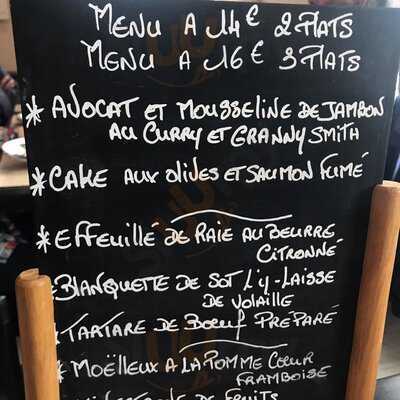 MENU A 14€ 2 PLATS
MENU A 16€ 3 PLATS
* AVOCAT ET MOUSSELINE DE JAMBON
AU CURRY ET GRANNY SMITH
* CAKE AUX OLIVES ET SAUMON FUMÉ
* EFFEUILLÉ DE RAIE AU BEURRE
CITRONNÉ
* BLANQUETTE DE SOT L'Y-LAISSE
DE VOLAILLE
* TARTARE DE BOEUF PRÉPARÉ
* MOËLLEUX A LA POMME COEUR
FRAMBOISE
DE FRUITS